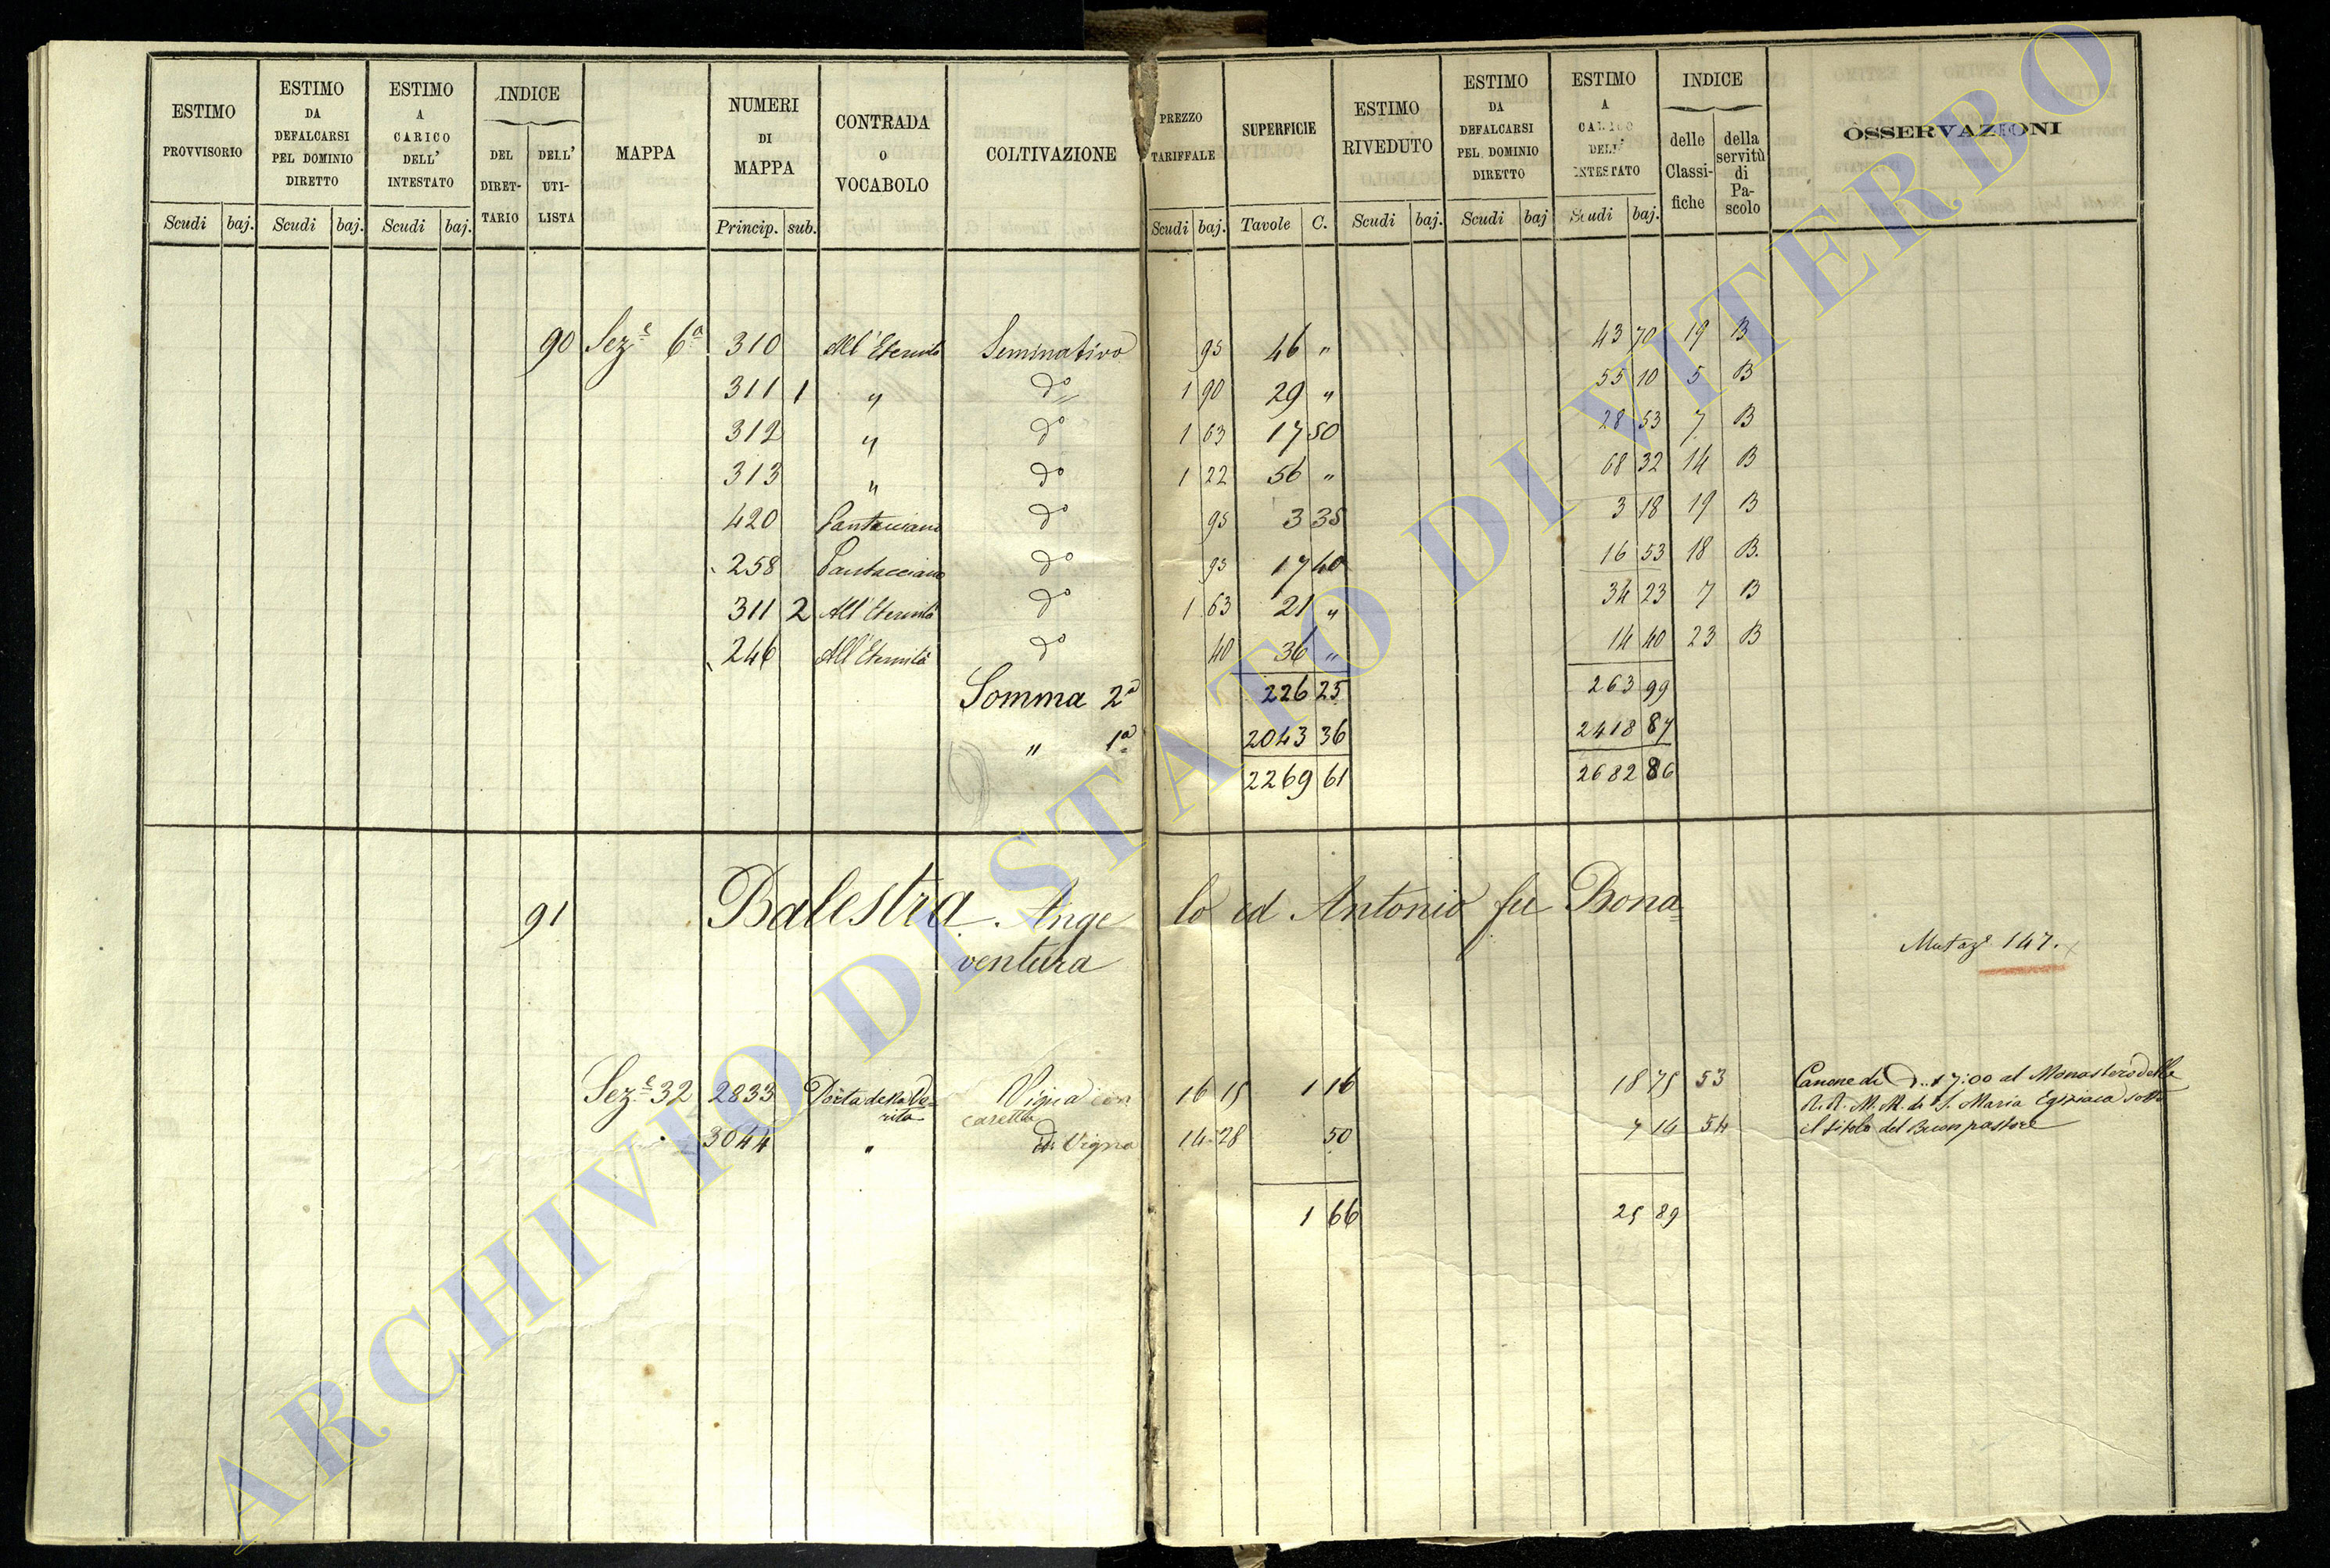 ESTIMO PROVVISORIO | ESTIMO DA DEFALCARSI PEL DOMINIO DIRETTO | ESTIMO A CARICO DELL' INTESTATO | INDICE DEL DIRET-TARIO | DELL' UTI-LISTA | MAPPA | NUMERI DI MAPPA | CONTRADA O VOCABOLO | COLTIVAZIONE | PREZZO TARIFFALE | SUPERFICIE | ESTIMO RIVEDUTO | ESTIMO DA DEFALCARSI PEL DOMINIO DIRETTO | ESTIMO A CARICO DELL' INTESTATO | INDICE delle Classi-fiche | della servitù di Pa-scolo | OSSERVAZIONI
Scudi baj. Scudi baj. Scudi baj. Princip. sub. Scudi baj. Tavole C. Scudi baj. Scudi baj Scudi baj.
90 Sez.e 6a 310 All'Eternità Seminativo 95 46 " 43 70 19 B
311 1 " do 1 90 29 " 55 10 5 B
312 " do 1 63 17 50 28 53 7 B
313 " do 1 22 56 " 68 32 14 B
420 Santacciano do 95 3 35 3 18 19 B
258 Santacciano do 95 17 40 16 53 18 B.
311 2 All'Eternità do 1 63 21 " 34 23 7 B
246 All'Eternità do 40 36 " 14 40 23 B
Somma 2a 226 25 263 99
" 1a 2043 36 2418 87
2269 61 2682 86
91 Balestra Angelo ed Antonio fu Bona=
ventura
Mutaze 147.
Sez.e 32 2833 Porta della Ve= Vigna con 16 15 1 16 18 75 53 Canone di 17:00 al Monastero delle
rità casetta R.R. M.M. di S. Maria Egiziaca sotto
3044 " Vigna 14 28 50 7 14 54 il titolo del Buon pastore
1 66 25 89
ARCHIVIO DI STATO DI VITERBO